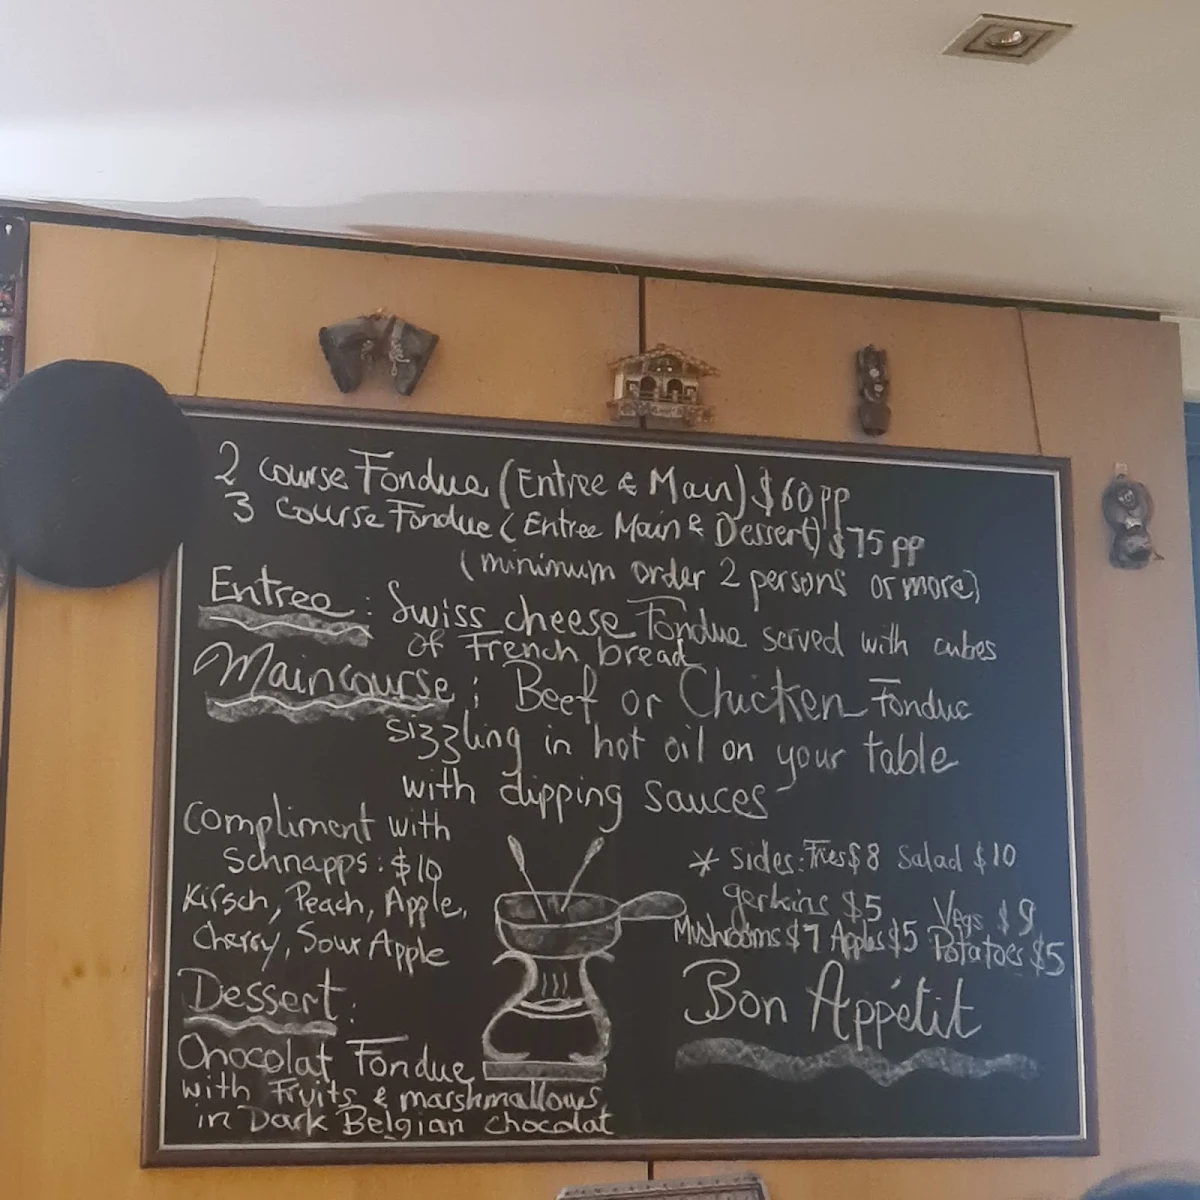 2 Course Fondue (Entree & Main) $60pp
3 Course Fondue (Entree Main & Dessert) $75pp
(minimum order 2 persons or more)
Entree: Swiss cheese Fondue served with cubes
of French bread
Maincourse: Beef or Chicken Fondue
sizzling in hot oil on your table
with dipping sauces
Compliment with
Schnapps: $10
Kirsch, Peach, Apple,
Cherry, Sour Apple
* sides: Fries $8 Salad $10
gerkins $5 Vegs $9
Mushrooms $7 Apples $5 Potatoes $5
Bon Appétit
Dessert:
Chocolat Fondue
with Fruits & marshmallows
in Dark Belgian chocolat